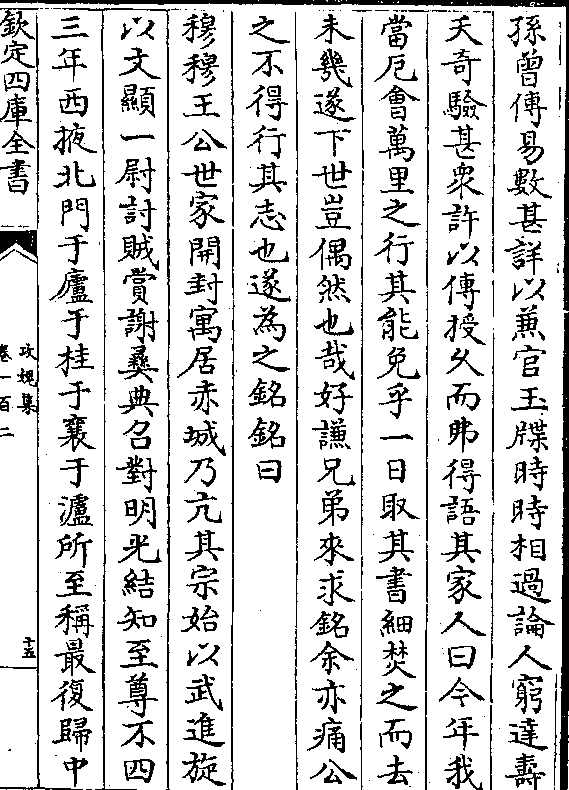 孫曾傳易數甚詳以兼官玉牒時時相過論人窮達壽
夭奇驗甚衆許以傳授久而弗得語其家人曰今年我
當厄會萬里之行其能免乎一日取其書細焚之而去
未幾遂下世豈偶然也哉好謙兄弟來求銘余亦痛公
之不得行其志也遂為之銘銘曰
穆穆王公世家開封寓居赤城乃亢其宗始以武進旋
以文顯一尉討賊賞謝彝典召對明光結知至尊不四
三年西掖北門于廬于桂于襄于瀘所至稱最復歸中
欽定四庫全書
攻媿集
卷一百二
十五